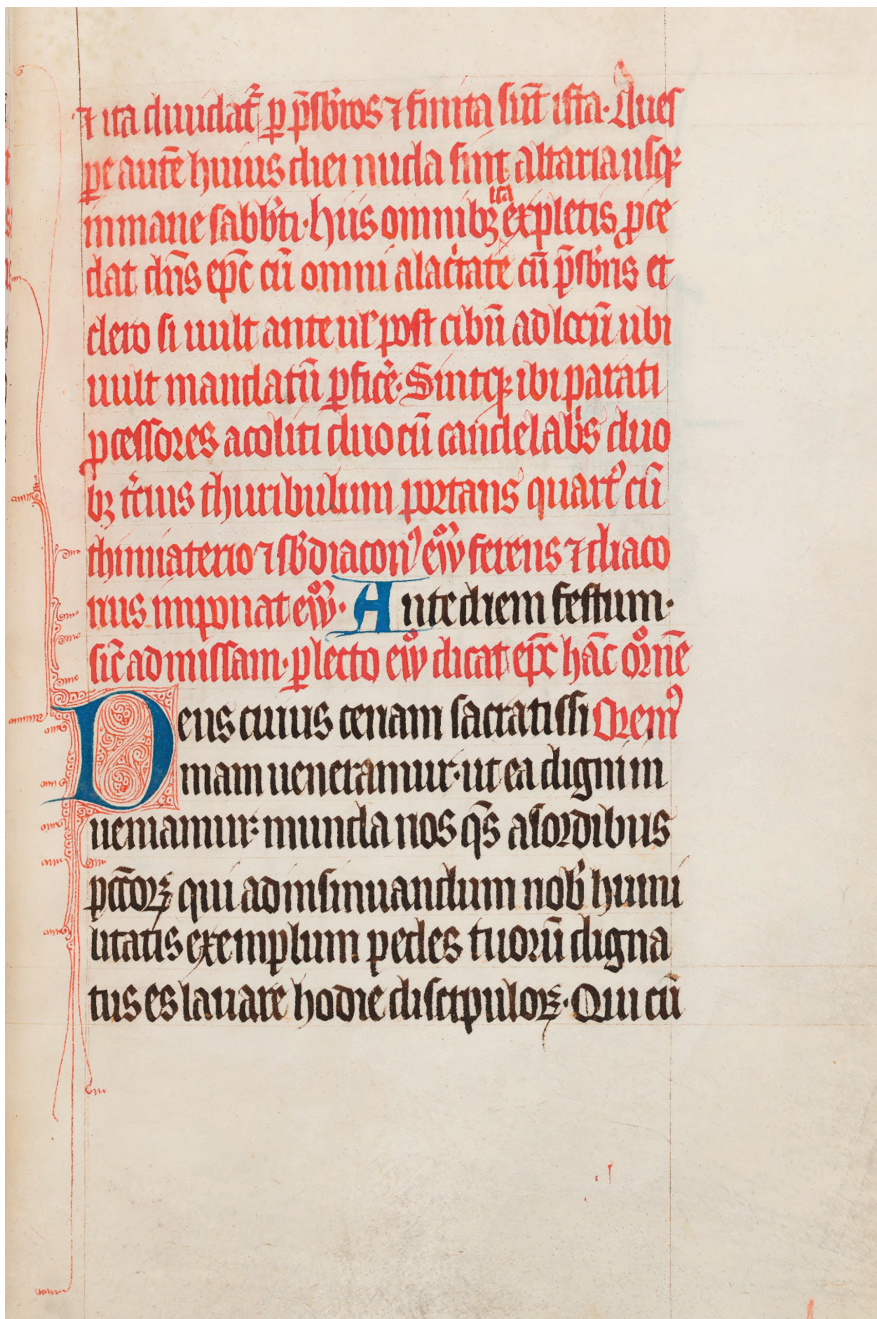 ⁊ ita diuidat᷑ ꝑ p̄sb̄ros ⁊ finita sūt ista· Ques
ꝑe autē huius diei nuda sint altaria usqꝫ
in mane sabb̄ti· hiis omnibꝫ ita expletis ꝓce
dat dn̄s ep̄c cū omni alac̍tate cū p̄sb̄ris et
clero si uult ante ul̓ post cibū ad locū ubi
uult mandatū ꝑfic̓e· Sintqꝫ ibi parati
ꝓcessores acoliti duo cū candelab̍s duo
bꝫ t̓cius thuribulum portans quartꝰ cū
thimiaterio ⁊ sb̄diaconꝰ eww̄ ferens ⁊ diaco
nus imponat eww̄· Ante diem festum·
sic̄ ad missam· ꝑlecto eww̄ dicat ep̄c hāc or̄onē
Deus cuius cenam sacratissi Oremꝰ
mam ueneramur· ut ea digni in
ueniamur· munda nos q̄s a sordibus
pc̄c̄oꝝ qui ad insinuandum nob̍ humi
litatis exemplum pedes tuorū digna
tus es lauare hodie discipuloꝝ· Qui cū